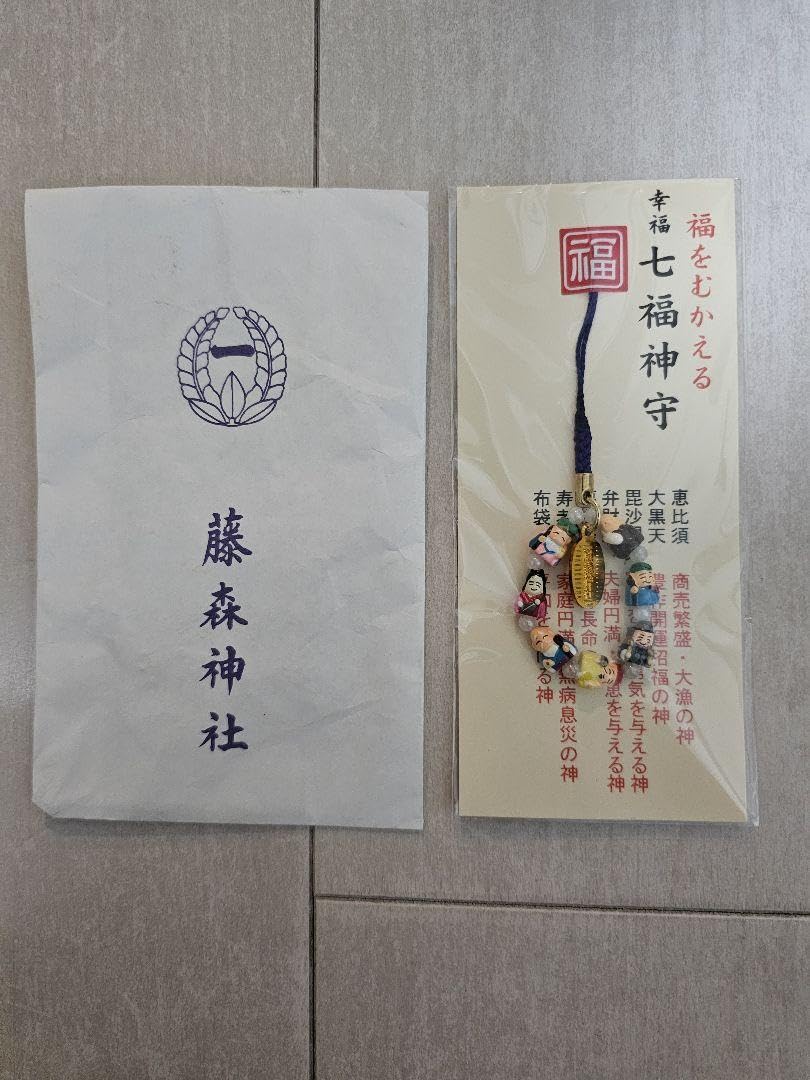 一
藤森神社
福をむかえる
幸福
七福神守
福
恵比須 商売繁盛・大漁の神
大黒天 豊作開運招福の神
毘沙 気を与える神
弁財 夫婦円満・ 恵を与える神
長命
寿 家庭円満 無病息災の神
布袋 る神